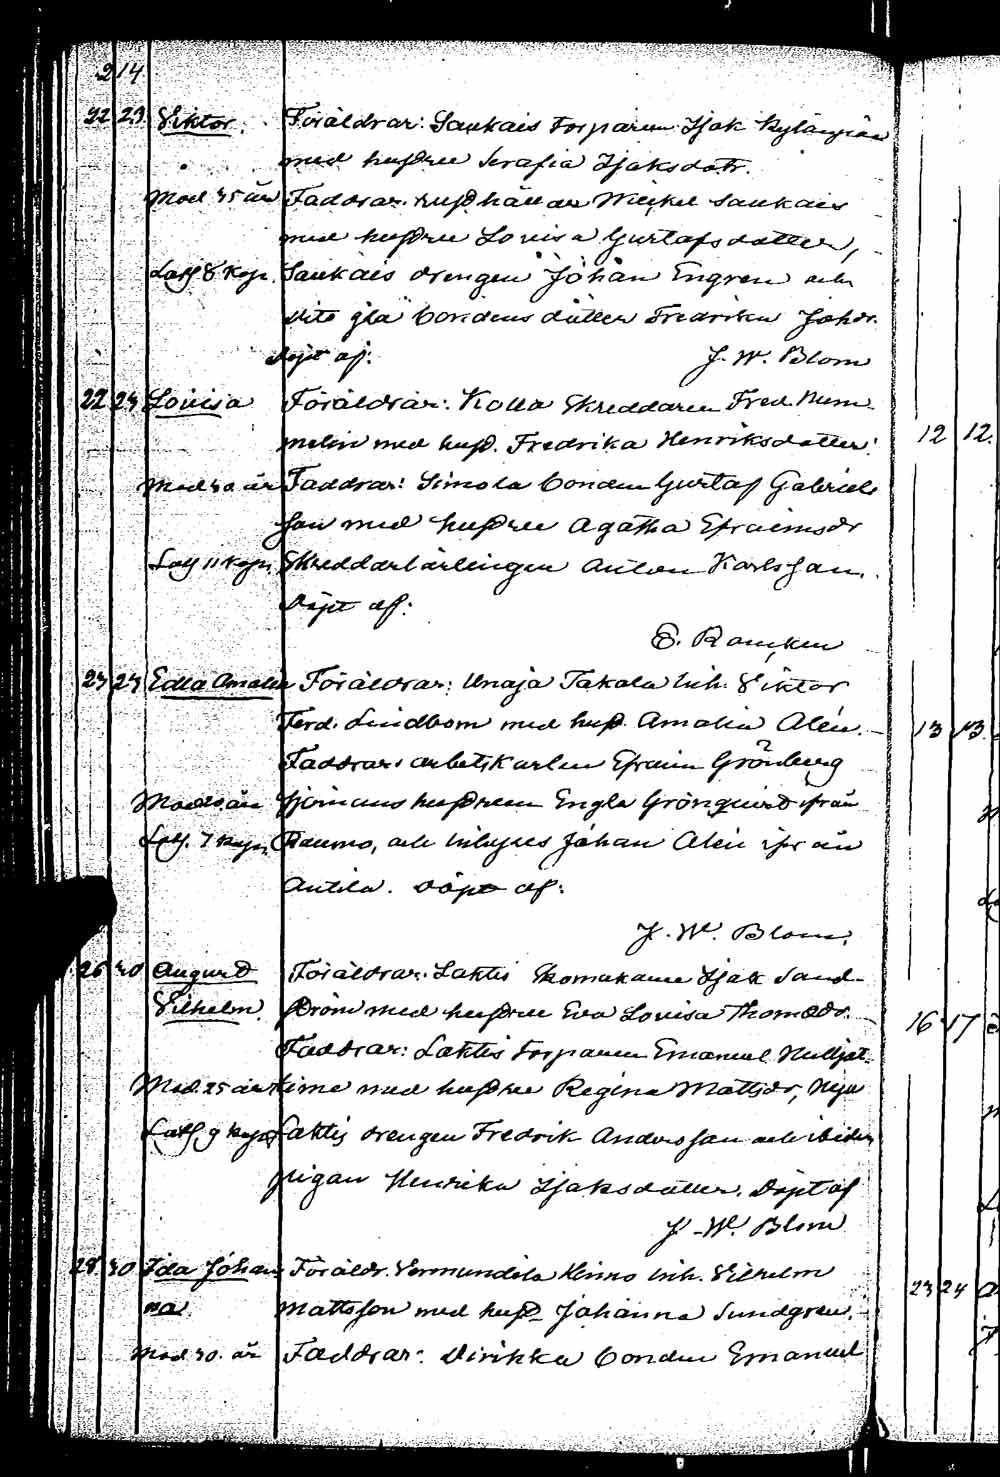 214
22 23 Viktor. Föräldrar: Saukais Torparen Isak Kylänpää
med hustru Serafia Isaksdotr.
Mod 35 år Faddrar. husbhållar Mickel Saukais
med hustru Lovisa Gustafsdotter,
Latf 8 kop. Saukais drengen Johan Engren och
dito Bondens dotter Fredrika Johdr.
Döpt af: J. W. Blom
22 23 Lovisa Föräldrar: Kolla Skreddaren Fred. Num-
melin med hust. Fredrika Henriksdotter.
Mod 30 år Faddrar: Simola bonden Gustaf Gabriels
son med hustru Agatha Efraimsdr
Latf 11 kop. Skreddarlärlingen Anton Karlsson.
Döpt af:
E. Rancken
23 23 Edla Amalia Föräldrar: Unaja Takala Inh. Viktor
Ferd. Lindbom med hust. Amalia Alén.
Faddrar: arbetskarlen Efraim Grönberg
Mod år hustrun Engla Grönqvist ifrån
Latf. 7 kop. Raumo, och inhyses Johan Alén ifrån
Antila. Döpt af:
J. W. Blom.
26 30 August Föräldrar: Laktis Skomakaren Isak Sand-
Vilhelm. ström med hustru Eva Lovisa Thomasdr.
Faddrar: Laktis Torparen Emanuel
Mod. 25 år med hustru Regina Mattsdr, Nya
Latf 9 kop Laktis drengen Fredrik Andersson och ibidem
pigan Henrika Isaksdotter. Döpt af
J. W. Blom
28 30 Ida Johan Föräldr. Vermundila Heino Inh. Vilhelm
na Mattsson med hust Johanna Sundgren.
Mod 30. år Faddrar: Dirikka bonden Emanuel
12 12.
13 13.
16 17
23 24